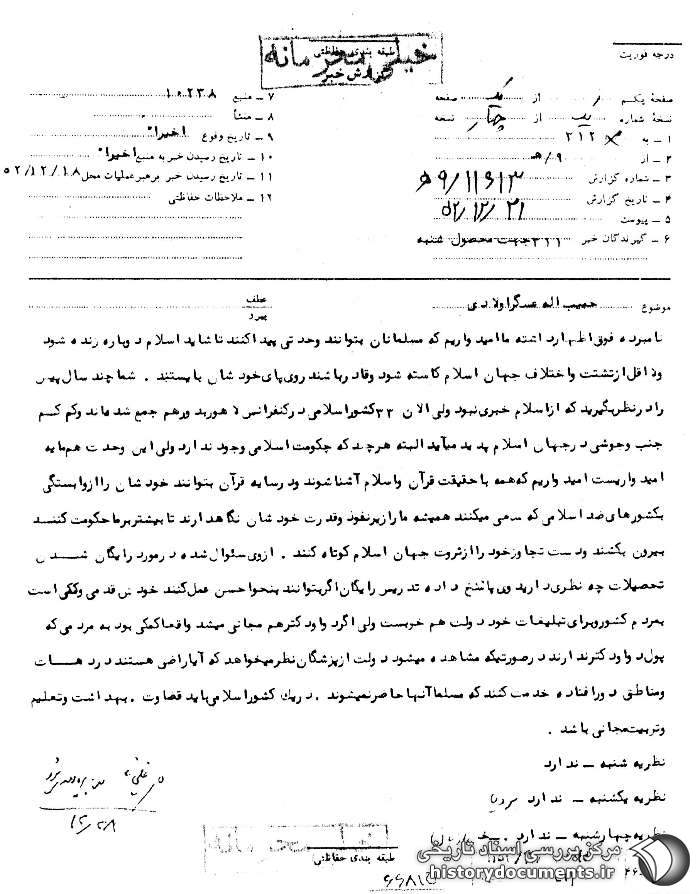 طبقه بندی حفاظتی
خیلی محرمانه
گزارش خبر
درجه فوریت
صفحهٔ یکم از یک صفحه
نسخهٔ شماره یک از چهار نسخه
۱ ـ به ۲۱۲
۲ ـ از ۹/ه
۳ ـ شماره گزارش
۴ ـ تاریخ گزارش ۵۲/۱۲/۲۱
۵ ـ پیوست
۶ ـ گیرندگان خبر ۳۲۱ جهت محصول شنبه
۷ ـ منبع ۱۰۲۳۸
۸ ـ منشأ
۹ ـ تاریخ وقوع اخیرا"
۱۰ ـ تاریخ رسیدن خبر به منبع اخیرا"
۱۱ ـ تاریخ رسیدن خبر برهبر عملیات محل ۵۲/۱۲/۱۸
۱۲ ـ ملاحظات حفاظتی
موضوع حبیب اله عسگراولادی
عطف
پیرو
نامبرده فوق اظهارداشته ما امیدواریم که مسلمانان بتوانند وحدتی پیدا کنند تا شاید اسلام دوباره زنده شود
ولااقل از تشتت واختلاف جهان اسلام کاسته شود وقادر باشند روی پای خودشان بایستند . شما چند سال پیش
را درنظر بگیرید که از اسلام خبری نبود ولی الان ۳۳ کشور اسلامی در کنفرانس لاهور بدور هم جمع شده اند وکم کم
جنب وجوشی درجهان اسلام پدید میآید البته هرچند که حکومت اسلامی وجود ندارد ولی این وحدت هم مایه
امیدواریست امیدواریم که همه با حقیقت قرآن واسلام آشنا شوند ودر سایه قرآن بتوانند خودشان را از وابستگی
بکشورهای ضد اسلامی که سعی میکنند همیشه ما را زیر نفوذ وقدرت خودشان نگاهدارند تا بیشتر برما حکومت کنند
بیرون بکشند ودست تجاوز خود را از ثروت جهان اسلام کوتاه کنند . ازوی سئوال شده درمورد رایگان شدن
تحصیلات چه نظری دارید وی پاسخ داده تدریس رایگان اگر بتوانند بنحو احسن عمل کنند خودش قدمی وکمکی است
بمردم کشور وبرای تبلیغات خود دولت هم خوبست ولی اگر دوا ودکتر هم مجانی میشد واقعا کمکی بود به مردمی که
پول دوا ودکتر ندارند درصورتیکه مشاهده میشود دولت از پزشگان نظر میخواهد که آیا راضی هستند در دهات
ومناطق دورافتاده خدمت کنند که مسلما آنها حاضر نمیشوند . دریک کشور اسلامی باید قضاوت . بهداشت وتعلیم
وتربیت مجانی باشد .
نظریه شنبه ـ ندارد
نظریه یکشنبه ـ ندارد
نظریه چهارشنبه ـ ندارد .
۱۲/۲۸
طبقه بندی حفاظتی
مرکز بررسی اسناد تاریخی
historydocuments.ir